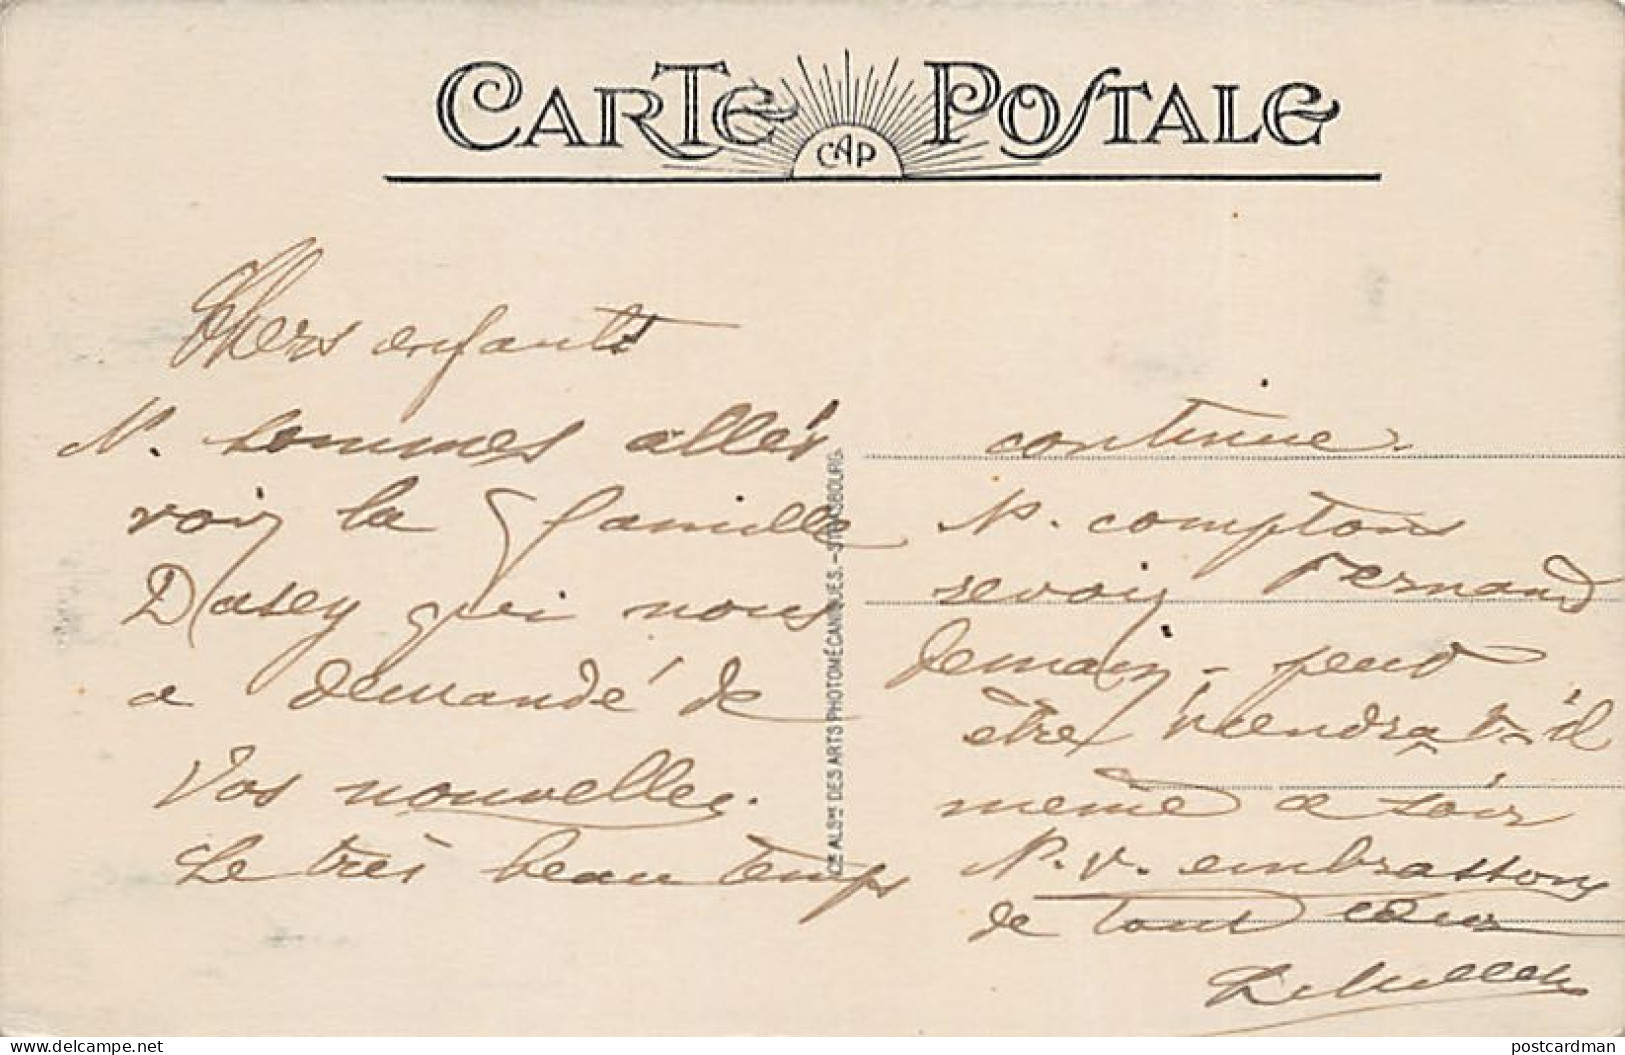 CARTE POSTALE
CAP
Chers enfants
N. sommes allés
voir la famille
Dasey qui nous
a demandé de
vos nouvelles.
Le très beau temps
CIE ALSNE DES ARTS PHOTOMÉCANIQUES.-STRASBOURG.
continue.
N. comptons
revoir Fernand
demain - peut
être viendra t-il
même ce soir
N. v. embrassons
de tout cœur
postcards-marketplace.com
postcardman